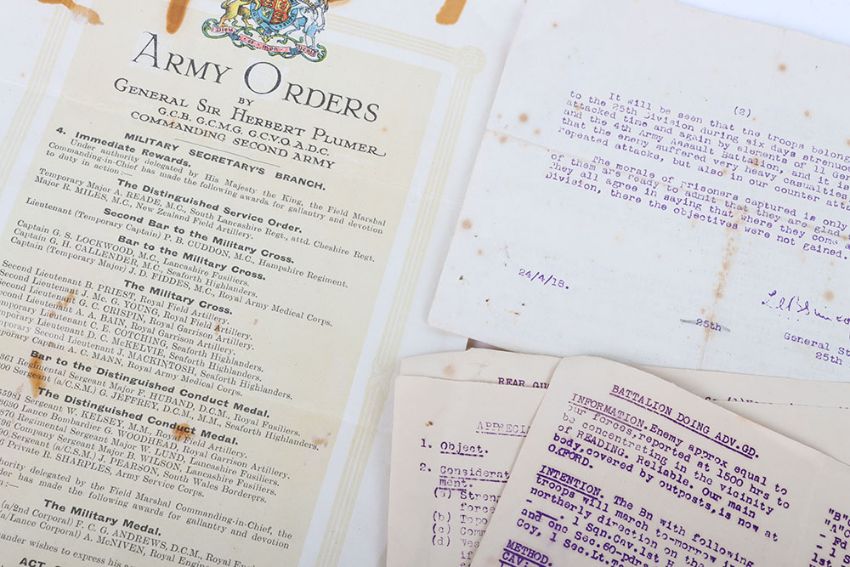 ARMY ORDERS
BY
GENERAL SIR HERBERT PLUMER
G.C.B., G.C.M.G., G.C.V.O., A.D.C.
COMMANDING SECOND ARMY
MILITARY SECRETARY'S BRANCH.
4. Immediate Rewards.
Under authority delegated by His Majesty the King, the Field Marshal
Commanding-in-Chief has made the following awards for gallantry and devotion
to duty in action:—
The Distinguished Service Order.
Temporary Major A. READE, M.C., South Lancashire Regt., attd. Cheshire Regt.
Major R. MILES, M.C., New Zealand Field Artillery.
Second Bar to the Military Cross.
Lieutenant (Temporary Captain) P. B. CUDDON, M.C., Hampshire Regiment.
Bar to the Military Cross.
Captain G. S. LOCKWOOD, M.C., Lancashire Fusiliers.
Captain G. H. CALLENDER, M.C., Seaforth Highlanders.
Captain (Temporary Major) J. D. FIDDES, M.C., Royal Army Medical Corps.
The Military Cross.
Second Lieutenant B. PRIEST, Royal Field Artillery.
Second Lieutenant J. Mc. C. PRENTOUNG, Royal Field Artillery.
Second Lieutenant G. C. CRISPIN, Royal Garrison Artillery.
Lieutenant A. A. RAIN, Royal Garrison Artillery.
Lieutenant C. E. COTCHING, Seaforth Highlanders.
Lieutenant D. C. McKELVIE, Seaforth Highlanders.
Second Lieutenant J. MACKINTOSH, Seaforth Highlanders.
Captain A. C. MANN, Royal Army Medical Corps.
Bar to the Distinguished Conduct Medal.
Regimental Sergeant Major F. HUBAND, D.C.M., Royal Fusiliers.
Sergeant (a/C.S.M.) G. JEFFREY, D.C.M., M.M., Seaforth Highlanders.
The Distinguished Conduct Medal.
Sergeant W. KELSEY, M.M., Royal Field Artillery.
Lance Bombardier G. WOODHEAD, Royal Garrison Artillery.
Regimental Sergeant Major W. LUND, Lancashire Fusiliers.
Company Sergeant Major B. WILSON, Lancashire Fusiliers.
Sergeant (a/C.S.M.) J. PEARSON, South Wales Borderers.
Private R. SHARPLES, Army Service Corps.
authority delegated by the Field Marshal Commanding-in-Chief, the
has made the following awards for gallantry and devotion
The Military Medal.
(a/2nd Corporal) F. C. G. ANDREWS, D.C.M., Royal
(a/Lance Corporal) A. McNIVEN, Royal Engineers.
wishes to express his
(2)
It will be seen that the troops belong
to the 25th Division during six days strenuous
attacked time and again by elements of 11 Ger
and the 4th Army Assault Battalion, and it is
that the enemy suffered very heavy casualties,
repeated attacks, but also in our counter attac
The morale of prisoners captured is only
of them are ready to admit that they are glad
They all agree in saying that where they come
Division, there the objectives were not gained.
24/4/18.
General St
25th
25th
REAR GU
APPRECI
1. Object.
2. Considerat
ment.
(a) Stren
(b) Topo
(c) Comm
(d) Wea
BATTALION DOING ADV.GD.
INFORMATION. Enemy approx equal to
our forces, reported at 1500 hrs to
be concentrating in the vicinity
of READING. Reliable. Our main
body, covered by outposts, is now at
OXFORD.
INTENTION. The Bn with following
troops will march tomorrow in
northerly direction on the
-. 1 Sqn.Cav. 1st H
and one Sec. 60-pdr
Coy, 1 Sec.Lt.T.
METHOD.
"B"
"A"